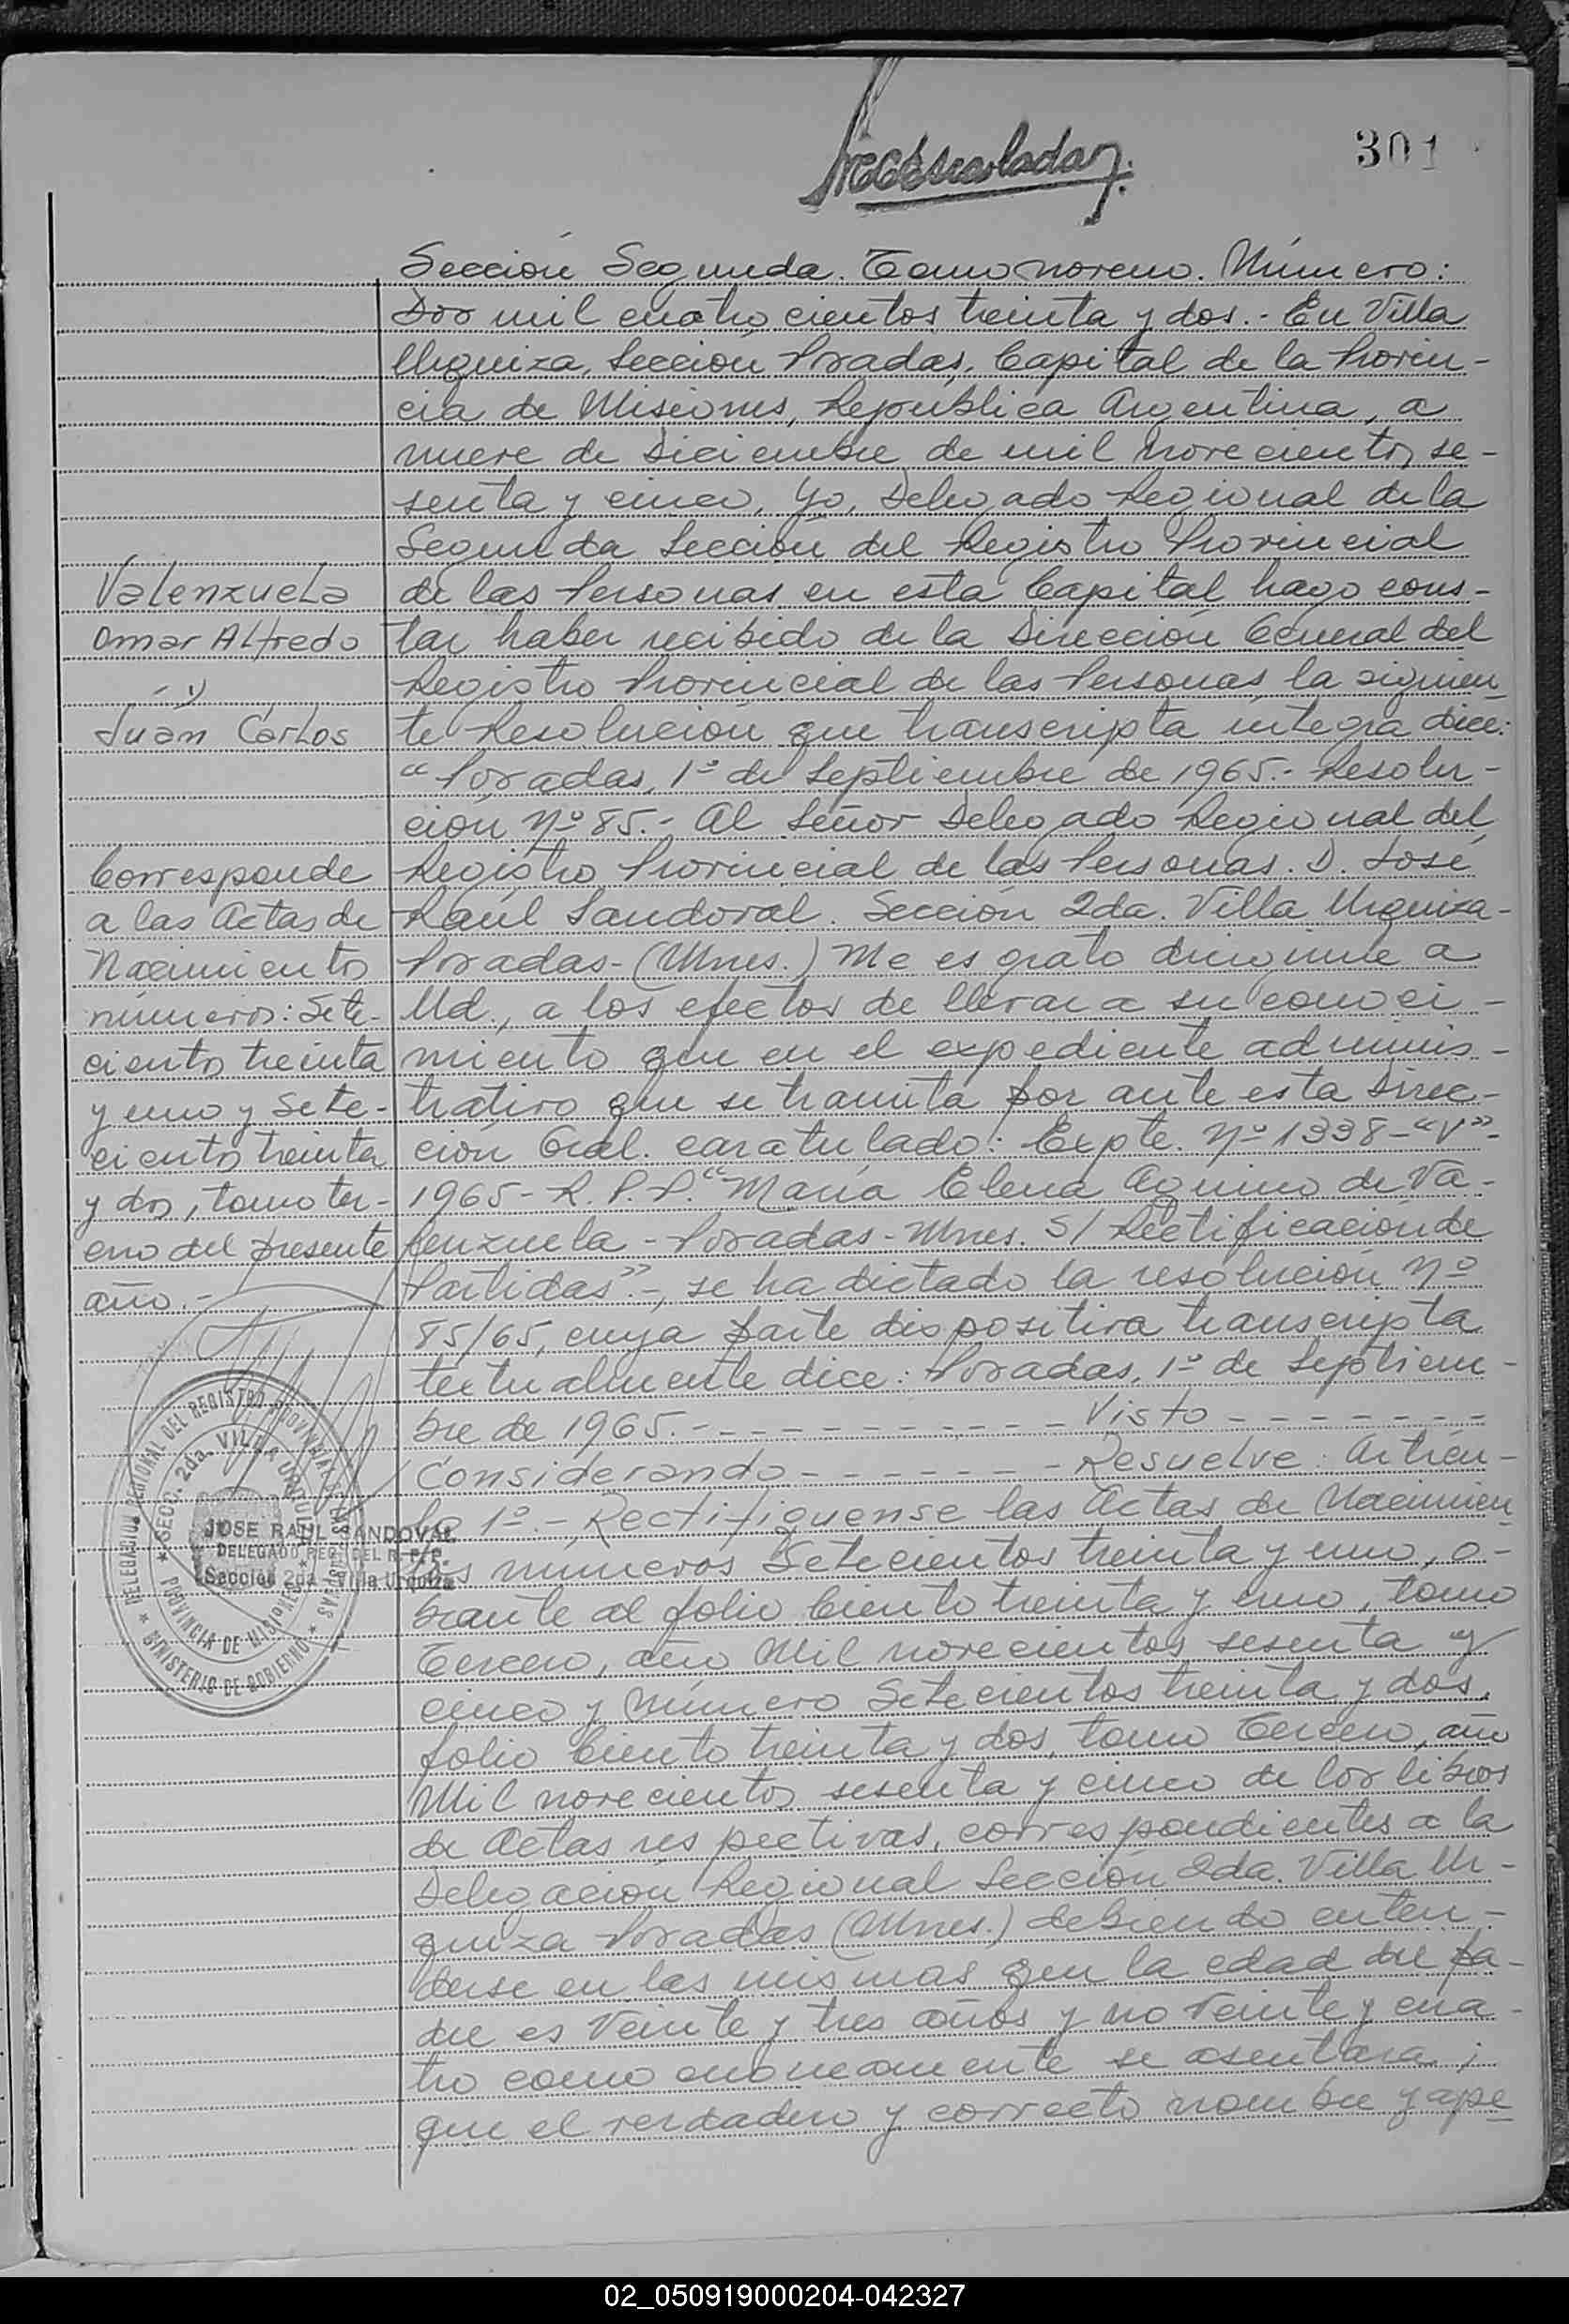 301
Sección Segunda. Tomo noveno. Número:
Dos mil cuatrocientos treinta y dos.- En Villa
Urquiza, Sección Posadas, Capital de la Provin-
cia de Misiones, República Argentina, a
nueve de Diciembre de mil novecientos se-
senta y cinco, Yo, Delegado Regional de la
Segunda Sección del Registro Provincial
de las Personas en esta Capital hago cons-
tar haber recibido de la Dirección General del
Registro Provincial de las Personas, la siguien
te Resolución que transcripta íntegra dice:
"Posadas, 1º de Septiembre de 1965.- Resolu-
ción, Nº 85.- Al Señor Delegado Regional del
Registro Provincial de las Personas. D. José
Raúl Sandoval. Sección 2da. Villa Urquiza-
Posadas-(Mnes.) Me es grato dirigirme a
Ud., a los efectos de llevar a su conoci-
miento que en el expediente adminis-
trativo que se tramita por ante esta Direc-
ción Gral. caratulado: Expte. Nº 1338-"V"-
1965- R.P.P. "María Elena Aquino de Va-
lenzuela - Posadas - Mnes. S/ Rectificación de
Partidas"-, se ha dictado la resolución Nº
85/65, cuya parte dispositiva transcripta
textualmente dice: Posadas, 1º de Septiem-
bre de 1965.- - - - - - - - - - Visto - - - - - - -
Considerando - - - - - - - Resuelve: Artícu-
lo 1º.- Rectifíquense las Actas de Nacimien
tos números Setecientos treinta y uno, o-
brante al folio Ciento treinta y uno, tomo
Tercero, año Mil novecientos sesenta y
cinco y Número Setecientos treinta y dos,
folio Ciento treinta y dos, tomo Tercero, año
Mil novecientos sesenta y cinco de los libros
de Actas respectivas, correspondientes a la
Delegación Regional Sección 2da. Villa Ur-
quiza Posadas (Mnes.) debiendo enten-
derse en las mismas que la edad del pa-
dre es Veinte y tres años y no Veinte y cua-
tro como erroneamente se asentara;
que el verdadero y correcto nombre y ape
Valenzuela
Omar Alfredo
y
Juan Carlos
Corresponde
a las Actas de
Nacimiento
números: Sete-
cientos treinta
y uno y Sete-
cientos treinta
y dos, tomo ter-
cero del presente
año.-
DELEGACION REGIONAL DEL REGISTRO PROVINCIAL DE LAS PERSONAS
SECC. 2da. VILLA URQUIZA
PROVINCIA DE MISIONES
MINISTERIO DE GOBIERNO
JOSE RAUL SANDOVAL
DELEGADO REG. DEL R. P. P.
Sección 2da - Villa Urquiza
02_050919000204-042327